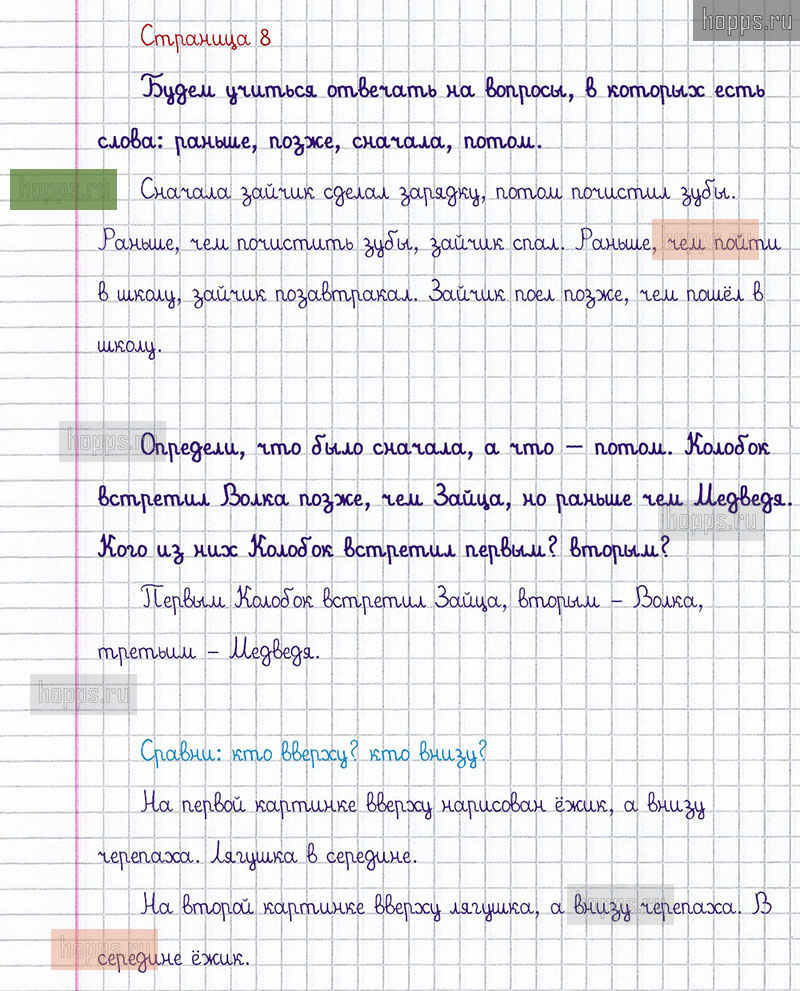 hopps.ru
Страница 8
Будем учиться отвечать на вопросы, в которых есть
слова: раньше, позже, сначала, потом.
hopps.ru
Сначала зайчик сделал зарядку, потом почистил зубы.
Раньше, чем почистить зубы, зайчик спал. Раньше, чем пойти
в школу, зайчик позавтракал. Зайчик поел позже, чем пошёл в
школу.
hopps.ru
Определи, что было сначала, а что — потом. Колобок
встретил Волка позже, чем Зайца, но раньше чем Медведя.
hopps.ru
Кого из них Колобок встретил первым? вторым?
Первым Колобок встретил Зайца, вторым – Волка,
третьим – Медведя.
hopps.ru
Сравни: кто вверху? кто внизу?
На первой картинке вверху нарисован ёжик, а внизу
черепаха. Лягушка в середине.
На второй картинке вверху лягушка, а внизу черепаха. В
hopps.ru
середине ёжик.